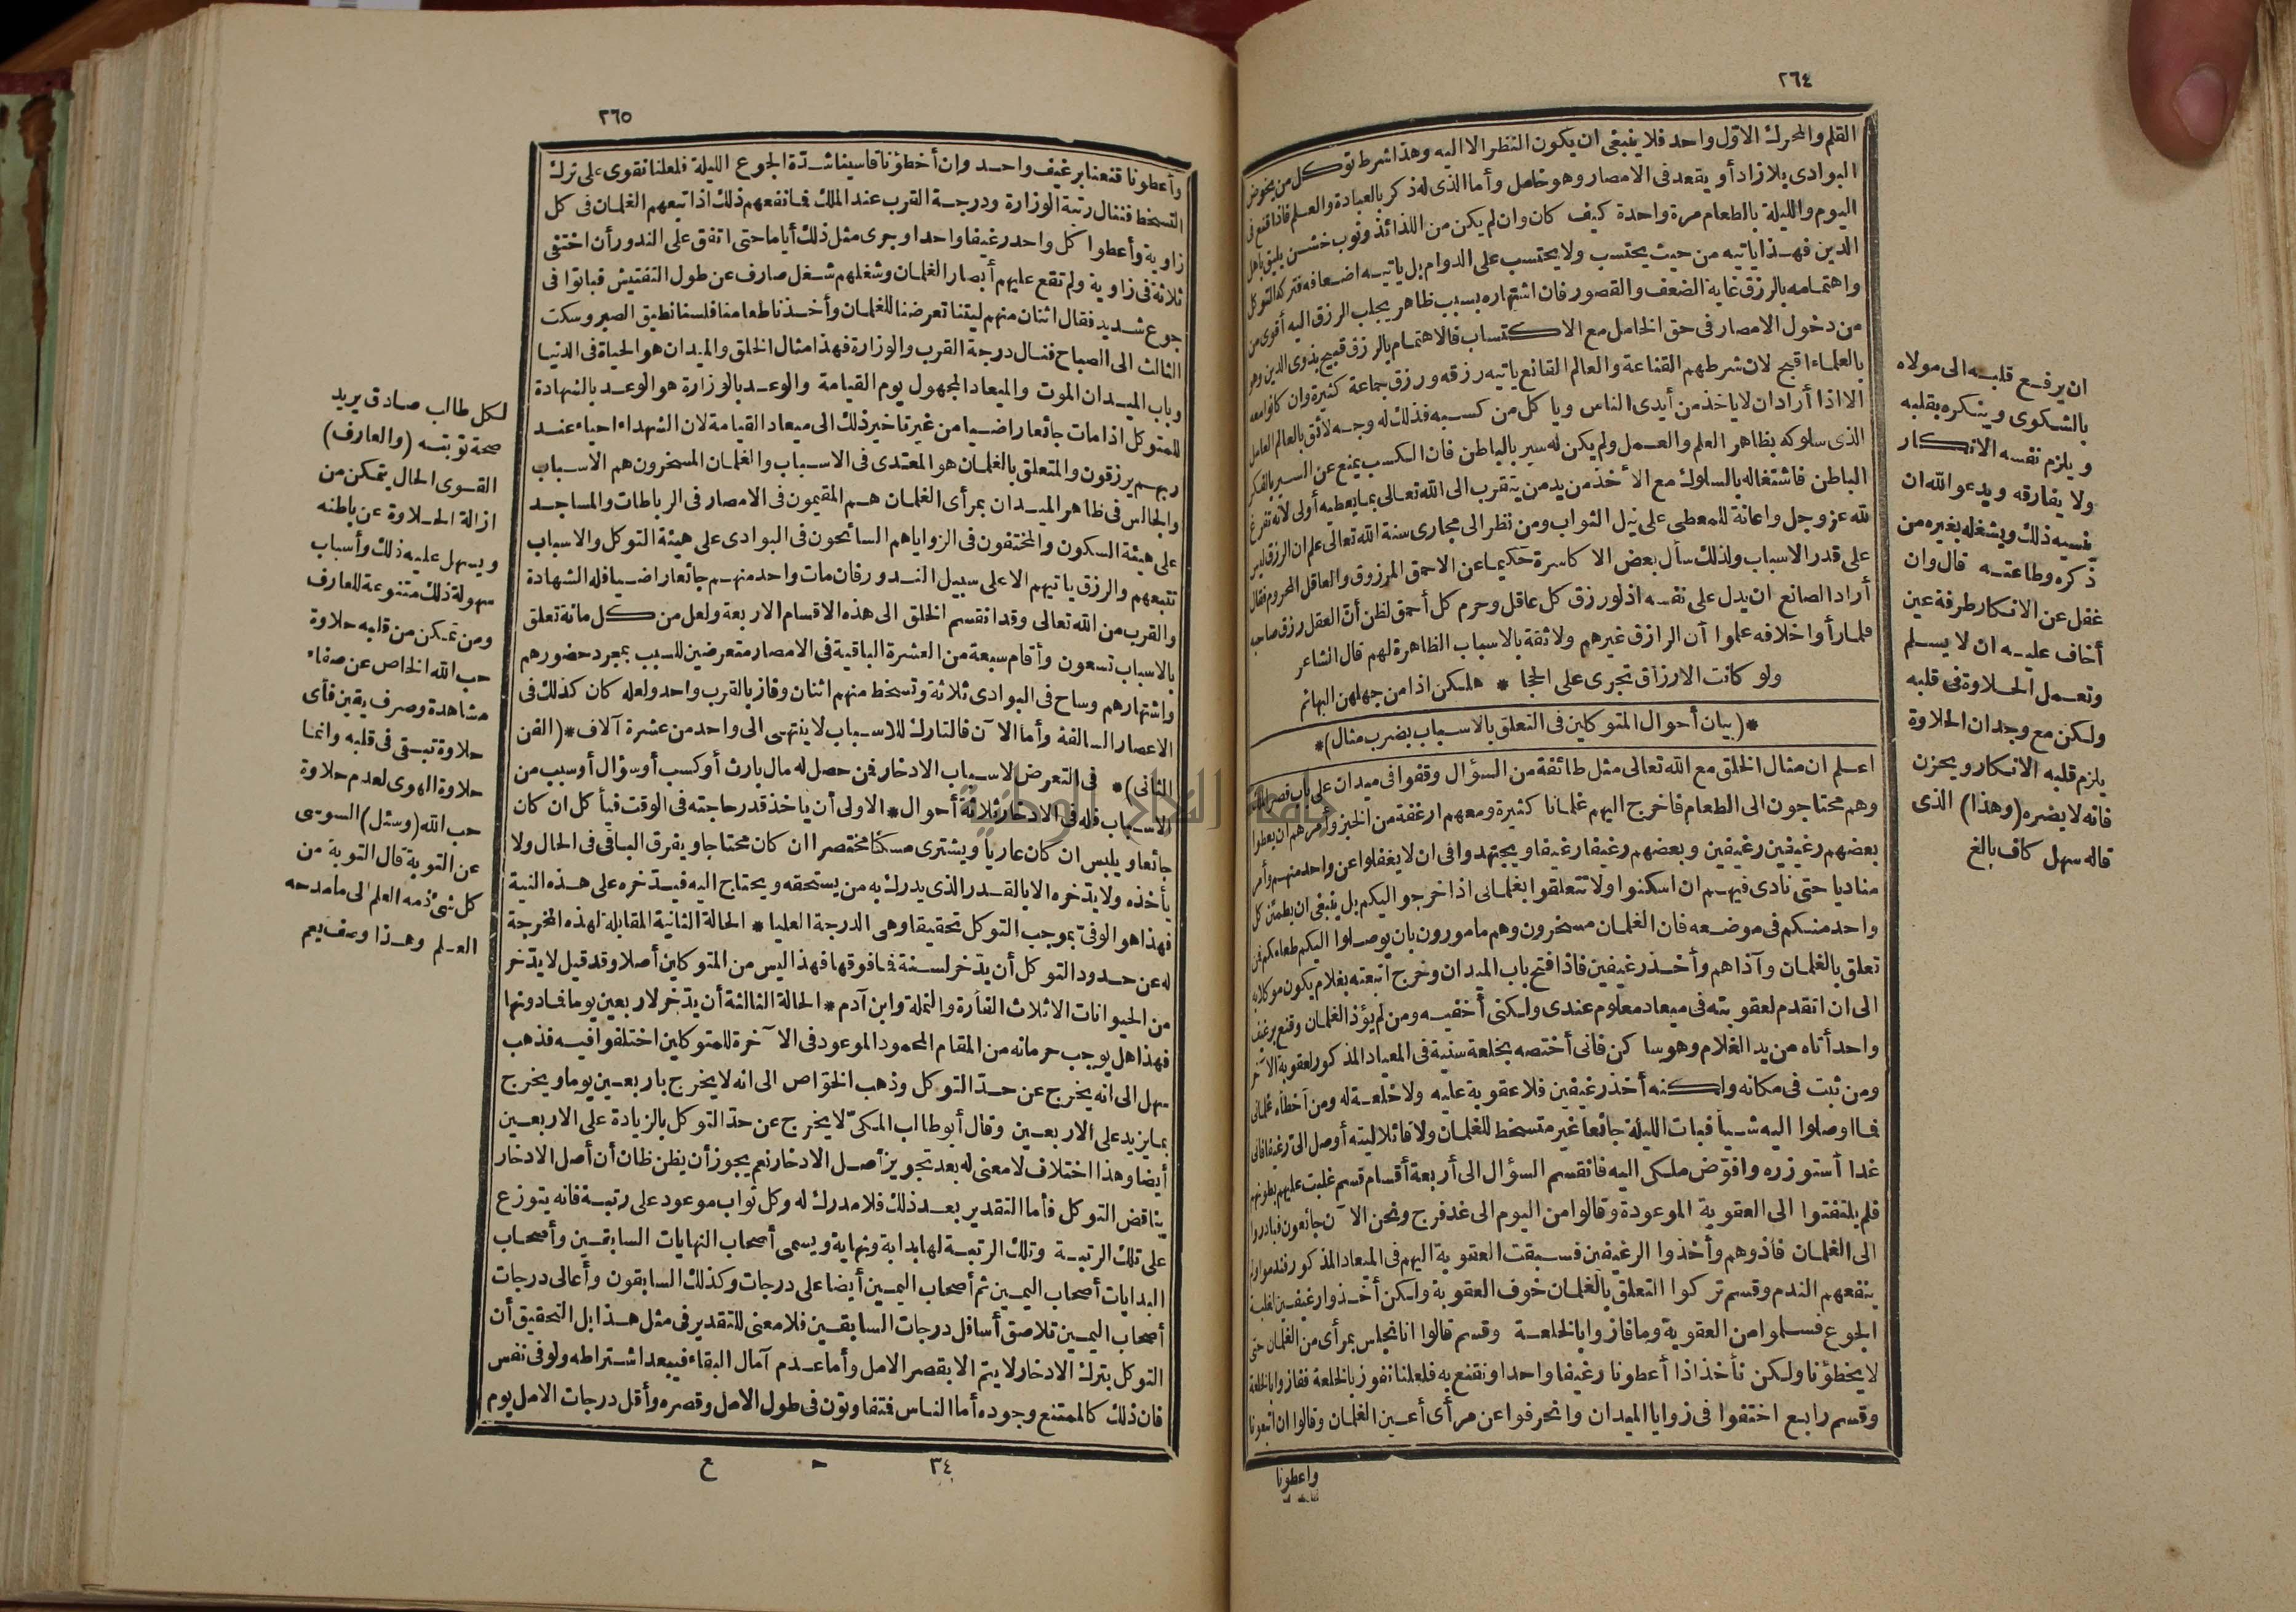 ٢٦٤
القلم والمحرك الاول واحد فلا ينبغى ان يكون النظر الا اليه وهذا شرط توكل من يخوض
البوادى بلا زاد أو يقعد فى الامصار وهو خامل وأما الذى له ذكر بالعبادة والعلم فاذا قنع فى
اليوم والليلة بالطعام مرة واحدة كيف كان وان لم يكن من اللذائذ وثوب خشن يليق بأهل
الدين فهذا ياتيه من حيث يحتسب ولا يحتسب على الدوام بل ياتيه اضعافه فتركه التوكل
واهتمامه بالرزق غاية الضعف والقصور فان اشتهاره بسبب ظاهر يجلب الرزق اليه أقوى من
من دخول الامصار فى حق الخامل مع الاكتساب فالاهتمام بالرزق قبيح بذوى الدين وهو
بالعلماء اقبح لان شرطهم القناعة والعالم القانع ياتيه رزقه ورزق جماعة كثيرة وان كانوا معه
الا اذا أراد ان لا ياخذ من أيدى الناس وياكل من كسبه فذلك له وجه لائق بالعالم العامل
الذى سلوكه بظاهر العلم والعمل ولم يكن له سير بالباطن فان الكسب يمنع عن السير بالفكر
الباطن فاشتغاله بالسلوك مع الأخذ من يد من يتقرب الى الله تعالى بما يعطيه أولى لانه تفرغ
لله عز وجل واعانة للمعطى على نيل الثواب ومن نظر الى مجارى سنة الله تعالى علم ان الرزق ليس
على قدر الاسباب ولذلك سأل بعض الاكاسرة حكيما عن الاحمق المرزوق والعاقل المحروم فقال
أراد الصانع ان يدل على نفسه اذ لو رزق كل عاقل وحرم كل أحمق لظن أن العقل رزق صاحبه
فلما رأوا خلافه علموا أن الرازق غيرهم ولا ثقة بالاسباب الظاهرة لهم قال الشاعر
ولو كانت الارزاق تجرى على الحجا * هلكن اذا من جهلهن البهائم
*(بيان أحوال المتوكلين فى التعلق بالاسباب بضرب مثال)*
اعلم ان مثال الخلق مع الله تعالى مثل طائفة من السؤال وقفوا فى ميدان على باب قصر الملك
وهم محتاجون الى الطعام فاخرج اليهم غلمانا كثيرة ومعهم ارغفة من الخبز وأمرهم ان يعطوا
بعضهم رغيفين رغيفين وبعضهم رغيفا رغيفا ويجتهدوا فى ان لا يغفلوا عن واحد منهم وأمر
مناديا حتى نادى فيهم ان اسكنوا ولا تتعلقوا بغلمانى اذا خرجوا اليكم بل ينبغى ان يطمئن كل
واحد منكم فى موضعه فان الغلمان مسخرون وهم مامورون بان يوصلوا اليكم طعامكم فمن
تعلق بالغلمان وآذاهم وأخذ رغيفين فاذا فتح باب الميدان وخرج اتبعته بغلام يكون موكلا به
الى ان اتقدم لعقوبته فى ميعاد معلوم عندى ولكنى أخفيه ومن لم يؤذ الغلمان وقنع برغيف
واحد أتاه من يد الغلام وهو ساكن فانى أختصه بخلعة سنية فى الميعاد المذكور لعقوبة الآخر
ومن ثبت فى مكانه ولكنه أخذ رغيفين فلا عقوبة عليه ولا خلعة له ومن أخطأه غلمانى
فما أوصلوا اليه شيأ فبات الليلة جائعا غير متسخط للغلمان ولا قائلا ليته أوصل الى رغيفا فانى
غدا أستوزره وافوض ملكى اليه فانقسم السؤال الى أربعة أقسام قسم غلبت عليهم بطونهم
فلم يلتفتوا الى العقوبة الموعودة وقالوا من اليوم الى غد فرج ونحن الآن جائعون فبادروا
الى الغلمان فآذوهم وأخذوا الرغيفين فسبقت العقوبة اليهم فى الميعاد المذكور فندموا ولم
ينفعهم الندم وقسم تركوا التعلق بالغلمان خوف العقوبة ولكن أخذوا رغيفين لغلبة
الجوع فسلموا من العقوبة وما فازوا بالخلعة وقسم قالوا انا نجلس بمرأى من الغلمان حتى
لا يخطؤنا ولكن نأخذ اذا أعطونا رغيفا واحدا ونقنع به فلعلنا نفوز بالخلعة ففازوا بالخلعة
وقسم رابع اختفوا فى زوايا الميدان وانحرفوا عن مرأى أعين الغلمان وقالوا ان اتبعونا
واعطونا
ان يرفع قلبه الى مولاه
بالشكوى وينكره بقلبه
ويلزم نفسه الانكار
ولا يفارقه ويدعو الله ان
ينسيه ذلك ويشغله بغيره من
ذكره وطاعته قال وان
غفل عن الانكار طرفة عين
أخاف عليه ان لا يسلم
وتعمل الحلاوة فى قلبه
ولكن مع وجدان الحلاوة
يلزم قلبه الانكار ويحزن
فانه لا يضره (وهذا) الذى
قاله سهل كاف بالغ
٢٦٥
وأعطونا قنعنا برغيف واحد وان أخطؤنا قاسينا شدة الجوع الليلة فلعلنا نقوى على ترك
التسخط فننال رتبة الوزارة ودرجة القرب عند الملك فما نفعهم ذلك اذ اتبعهم الغلمان فى كل
زاوية وأعطوا كل واحد رغيفا واحدا وجرى مثل ذلك أياما حتى اتفق على الندور أن اختفى
ثلاثة فى زاوية ولم تقع عليهم أبصار الغلمان وشغلهم شغل صارف عن طول التفتيش فباتوا فى
جوع شديد فقال اثنان منهم ليتنا تعرضنا للغلمان وأخذنا طعامنا فلسنا نطيق الصبر وسكت
الثالث الى الصباح فنال درجة القرب والوزارة فهذا مثال الخلق والميدان هو الحياة فى الدنيا
وباب الميدان الموت والميعاد المجهول يوم القيامة والوعد بالوزارة هو الوعد بالشهادة
للمتوكل اذا مات جائعا راضيا من غير تاخير ذلك الى ميعاد القيامة لان الشهداء احياء عند
ربهم يرزقون والمتعلق بالغلمان هو المعتدى فى الاسباب والغلمان المسخرون هم الاسباب
والجالس فى ظاهر الميدان بمرأى الغلمان هم المقيمون فى الامصار فى الرباطات والمساجد
على هيئة السكون والمختفون فى الزوايا هم السائحون فى البوادى على هيئة التوكل والاسباب
تتبعهم والرزق ياتيهم الا على سبيل الندور فان مات واحد منهم جائعا راضيا فله الشهادة
والقرب من الله تعالى وقد انقسم الخلق الى هذه الاقسام الاربعة ولعل من كل مائة تعلق
بالاسباب تسعون وأقام سبعة من العشرة الباقية فى الامصار متعرضين للسبب بمجرد حضورهم
واشتهارهم وساح فى البوادى ثلاثة وتسخط منهم اثنان وفاز بالقرب واحد ولعله كان كذلك فى
الاعصار السالفة وأما الآن فالتارك للاسباب لا ينتهى الى واحد من عشرة آلاف *(الفن
الثانى)* فى التعرض لاسباب الادخار فمن حصل له مال بارث أو كسب أو سؤال أو سبب من
الاسباب فله فى الادخار ثلاثة أحوال * الاولى أن ياخذ قدر حاجته فى الوقت فيأكل ان كان
جائعا ويلبس ان كان عاريا ويشترى مسكنا مختصرا ان كان محتاجا ويفرق الباقى فى الحال ولا
يأخذه ولا يدخره الا بالقدر الذى يدرك به من يستحقه ويحتاج اليه فيدخره على هذه النية
فهذا هو الوفى بموجب التوكل تحقيقا وهى الدرجة العليا * الحالة الثانية المقابلة لهذه المخرجة
له عن حدود التوكل أن يدخر لسنة فما فوقها فهذا ليس من المتوكلين أصلا وقد قيل لا يدخر
من الحيوانات الا ثلاث الفأرة والنملة وابن آدم * الحالة الثالثة أن يدخر لاربعين يوما فما دونها
فهذا هل يوجب حرمانه من المقام المحمود الموعود فى الآخرة للمتوكلين اختلفوا فيه فذهب
سهل الى انه يخرج عن حد التوكل وذهب الخواص الى انه لا يخرج باربعين يوما ويخرج
بما يزيد على الاربعين وقال أبو طالب المكى لا يخرج عن حد التوكل بالزيادة على الاربعين
أيضا وهذا اختلاف لا معنى له بعد تجويز أصل الادخار نعم يجوز أن يظن ظان أن أصل الادخار
يناقض التوكل فأما التقدير بعد ذلك فلا مدرك له وكل ثواب موعود على رتبة فانه يتوزع
على تلك الرتبة وتلك الرتبة لها بداية ونهاية ويسمى أصحاب النهايات السابقين وأصحاب
البدايات أصحاب اليمين ثم أصحاب اليمين أيضا على درجات وكذلك السابقون وأعالى درجات
أصحاب اليمين تلاصق أسافل درجات السابقين فلا معنى للتقدير فى مثل هذا بل التحقيق أن
التوكل بترك الادخار لا يتم الا بقصر الامل وأما عدم آمال البقاء فيبعد اشتراطه ولو فى نفس
فان ذلك كالممتنع وجوده أما الناس فمتفاوتون فى طول الامل وقصره وأقل درجات الامل يوم
٣٤ ع
لكل طالب صادق يريد
صحة توبته (والعارف)
القوى الحال يتمكن من
ازالة الحلاوة عن باطنه
ويسهل عليه ذلك وأسباب
سهولة ذلك متنوعة للعارف
ومن تمكن من قلبه حلاوة
حب الله الخاص عن صفاء
مشاهدة وصرف يقين فأى
حلاوة تبقى فى قلبه وانما
حلاوة الهوى لعدم حلاوة
حب الله (وسئل) السوسى
عن التوبة قال التوبة من
كل شئ ذمه العلم الى ما مدحه
العلم وهذا وصف يعم